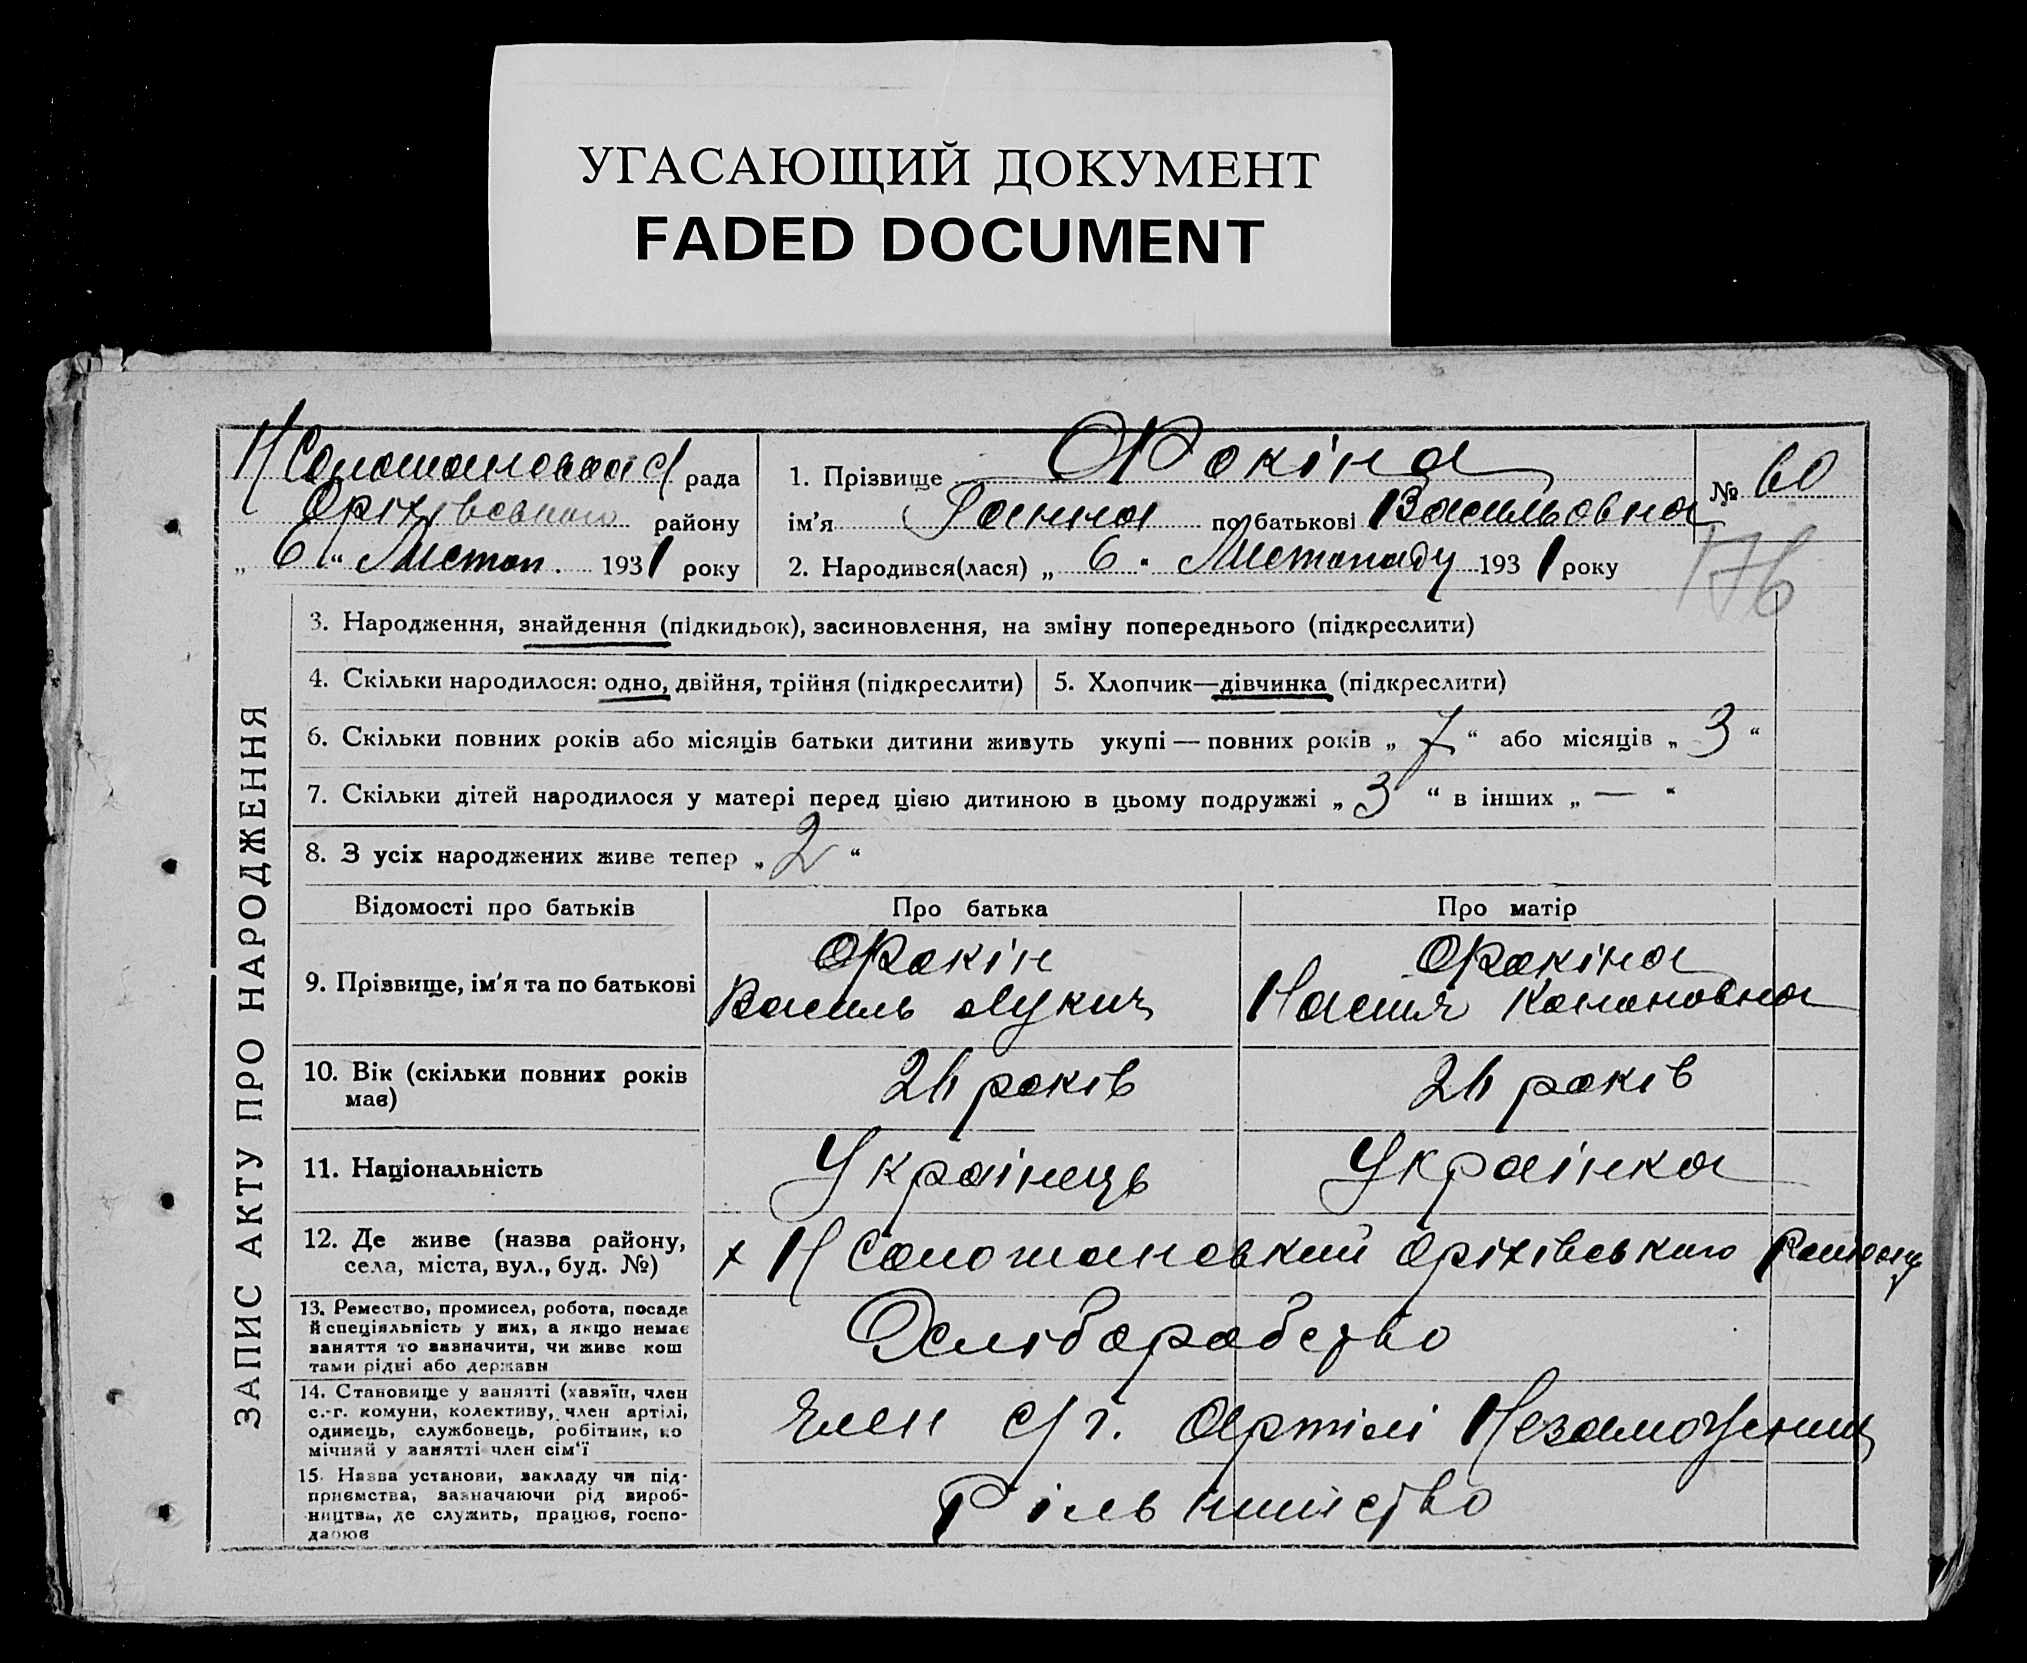 УГАСАЮЩИЙ ДОКУМЕНТ
FADED DOCUMENT
рада
Оріхівського району
„ 6 “ Листоп. 1931 року
1. Прізвище Фокіна
ім’я Ганна по батькові Васильовна
2. Народився(лася) „ 6 “ Листопаду 1931 року
№ 60
176
ЗАПИС АКТУ ПРО НАРОДЖЕННЯ
3. Народження, знайдення (підкидьок), засиновлення, на зміну попереднього (підкреслити)
4. Скільки народилося: одно, двійня, трійня (підкреслити)
5. Хлопчик—дівчинка (підкреслити)
6. Скільки повних років або місяців батьки дитини живуть укупі — повних років „ 7 “ або місяців „ 3 “
7. Скільки дітей народилося у матері перед цією дитиною в цьому подружжі „ 3 “ в інших „ — “
8. З усіх народжених живе тепер „ 2 “
Відомості про батьків
Про батька
Про матір
9. Прізвище, ім’я та по батькові
Фокін
Василь Лукич
Фокіна
10. Вік (скільки повних років
має)
років
років
11. Національність
Українець
Українка
12. Де живе (назва району,
села, міста, вул., буд. №)
х Н Соло Оріхівського Району
13. Ремество, промисел, робота, посада
й спеціяльність у них, а якщо немає
заняття то зазначити, чи живе кош
тами рідні або держави
Хліборобство
14. Становище у занятті (хазяїн, член
с.-г. комуни, колективу, член артілі,
одинець, службовець, робітник, по
мічний у занятті член сім’ї
Член с/г. Артілі Незаможник
15. Назва установи, закладу чи під-
приємства, зазначаючи рід вироб-
ництва, де служить, працює, госпо-
дарює
Рільництво